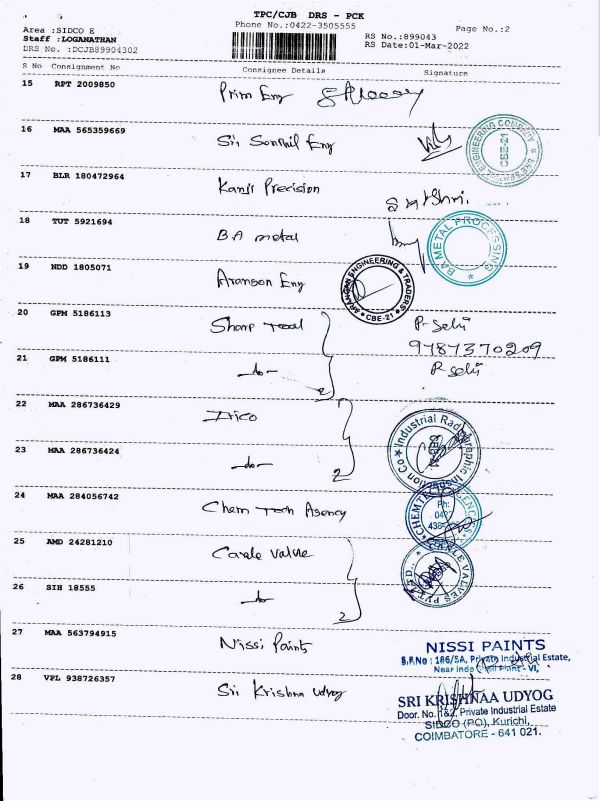 TPC/CJB DRS - PCK
Area :SIDCO E Phone No.:0422-3505555 Page No.:2
Staff :LOGANATHAN RS No.:899043
DRS No. :DCJB89904302 RS Date:01-Mar-2022
S No Consignment No Consignee Details Signature
15 RPT 2009850 Prim Eng
16 MAA 565359669 Sri Eng ENGINEERING COMPANY CBE-21
17 BLR 180472964 Kanji Precision
18 TUT 5921694 B.A metal BA METAL PROCESSING
19 NDD 1805071 Aranson Eng ENGINEERING & TRADERS CBE-21
20 GPM 5186113 Sharp Tool P. Selvi
9787370209
21 GPM 5186111 -do- 2 P. Selvi
22 MAA 286736429 Irico
Industrial Radiographic Inspection Co CBE-21
23 MAA 286736424 -do- 2
24 MAA 284056742 Chem Tech Agency Ph:
25 AMD 24281210 Carale Valve VALVES PVT LTD.
26 SIH 18555 -do- 2
27 MAA 563794915 Nissi Paints NISSI PAINTS
S.F.No : 186/5A, Private Industrial Estate,
28 VPL 938726357 Sri Krishna udyog SRI KRISHNAA UDYOG
Door. No. 1&2, Private Industrial Estate
SIDCO (PO), Kurichi,
COIMBATORE - 641 021.